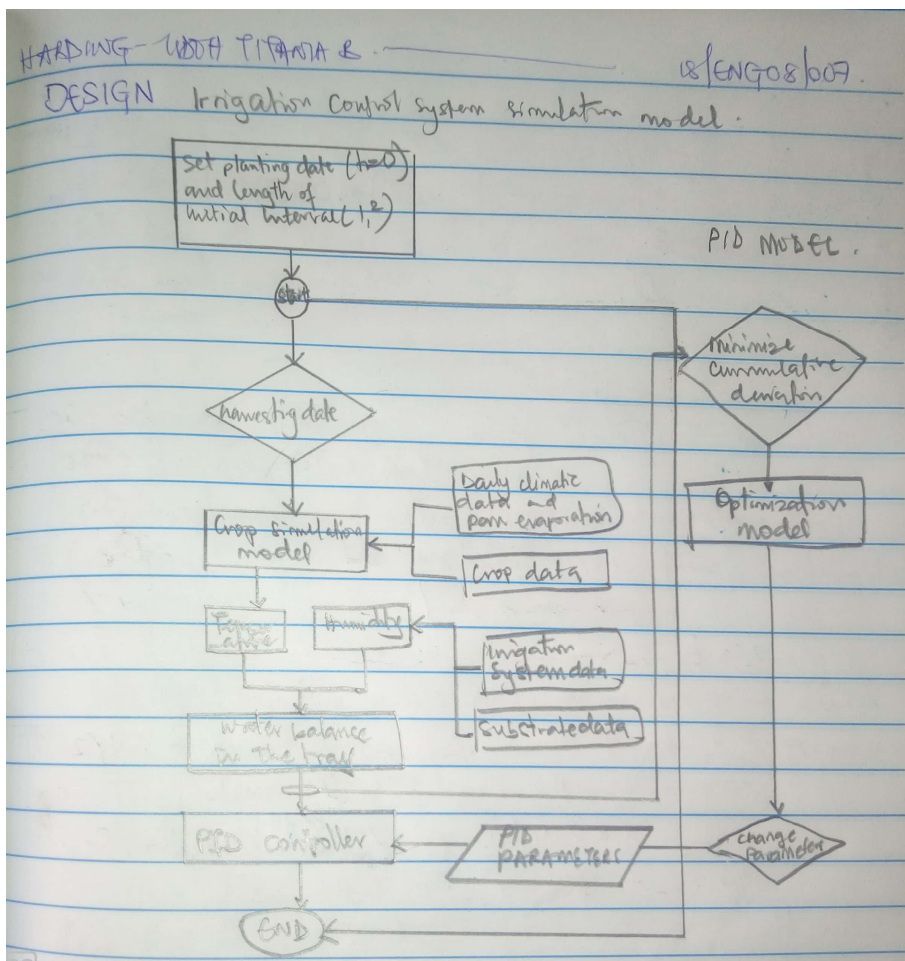 HARDING - UDOH TITANIA B.
18/ENG08/007.
DESIGN Irrigation control system simulation model.
set planting date (h=0)
and length of
initial interval (1,2)
PID MODEL.
start
minimize
cummulative
deviation
harvestig date
Daily climatic
data and
pan evaporation
Optimization
model
Crop simulation
model
Crop data
Humidity
irrigation
system data
substrate data
water balance
in the tray
PID controller
PID
PARAMETERS
change
parameter
END